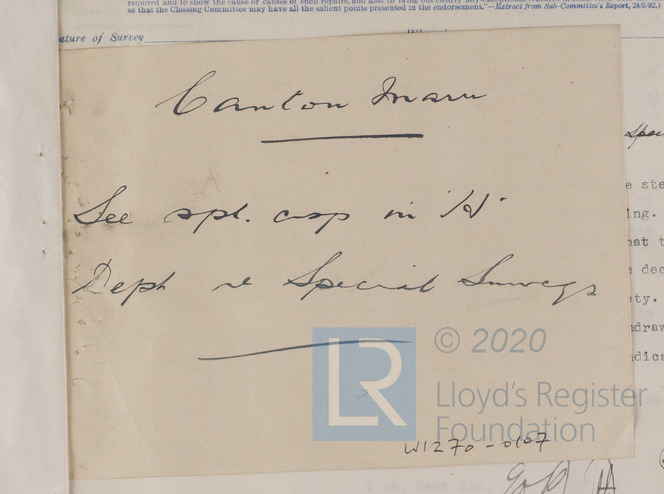 required and to show the cause or causes of such repairs, and also to bring out clearly any
so that the Classing Committee may have all the salient points presented in the endorsement."—Extract from Sub-Committee's Report, 24/5/92.)
ature of Survey
Canton Maru
See spl. in 'H'
Dept re Special Surveys
LR
© 2020
Lloyd's Register
Foundation
W1270-0107
e ste
ing.
hat t
dec
ty.
draw
dica
H